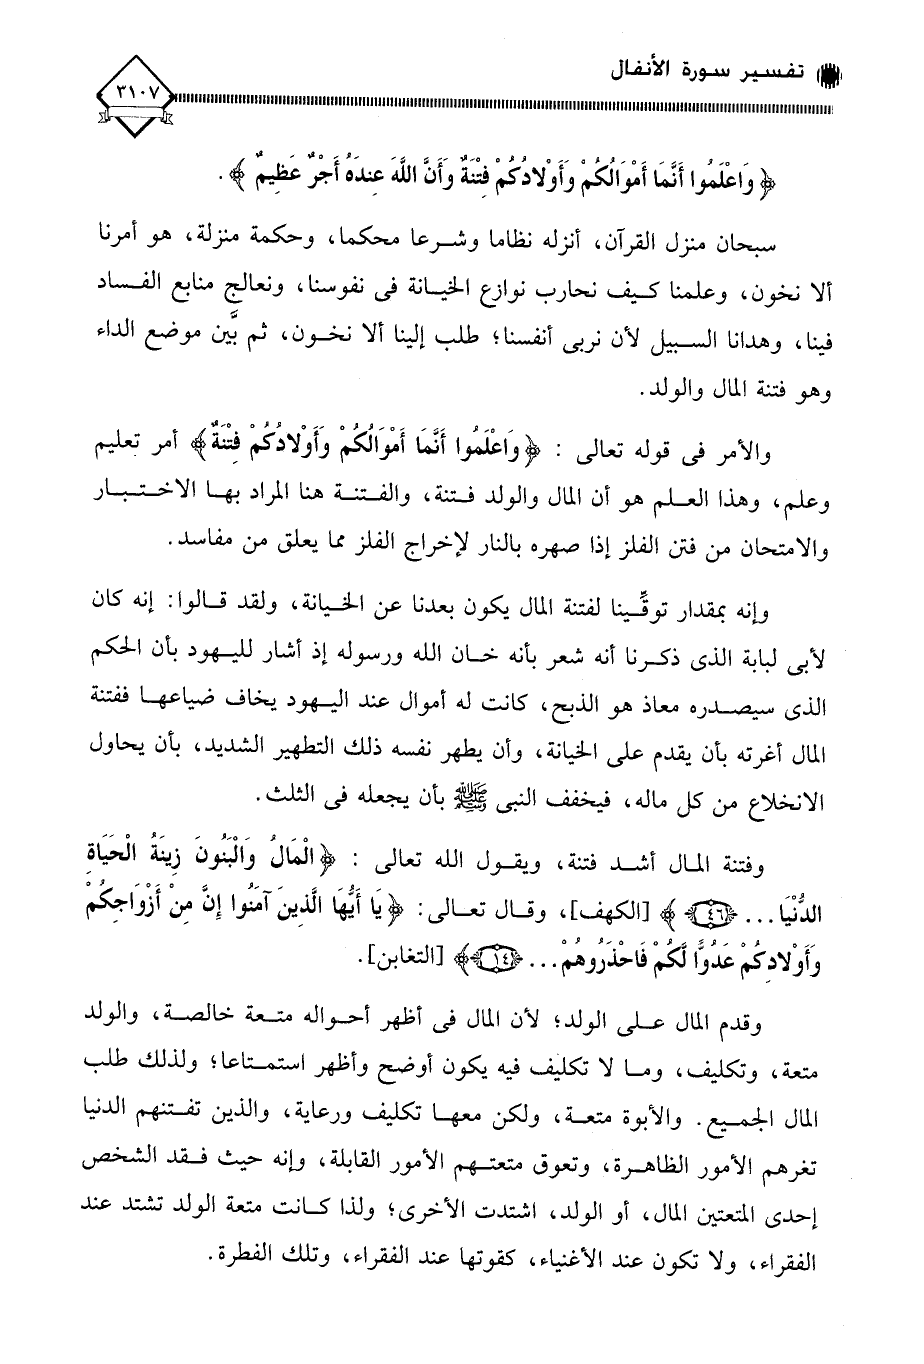 تفسير سورة الأنفال
٣١٠٧
﴿ وَاعْلَمُوا أَنَّمَا أَمْوَالُكُمْ وَأَوْلَادُكُمْ فِتْنَةٌ وَأَنَّ اللَّهَ عِندَهُ أَجْرٌ عَظِيمٌ ﴾ .
سبحان منزل القرآن، أنزله نظاما وشرعا محكما، وحكمة منزلة، هو أمرنا
ألا نخون، وعلمنا كيف نحارب نوازع الخيانة فى نفوسنا، ونعالج منابع الفساد
فينا، وهدانا السبيل لأن نربى أنفسنا؛ طلب إلينا ألا نخون، ثم بيَّن موضع الداء
وهو فتنة المال والولد.
والأمر فى قوله تعالى : ﴿ وَاعْلَمُوا أَنَّمَا أَمْوَالُكُمْ وَأَوْلَادُكُمْ فِتْنَةٌ ﴾ أمر تعليم
وعلم، وهذا العلم هو أن المال والولد فتنة، والفتنة هنا المراد بها الاختبار
والامتحان من فتن الفلز إذا صهره بالنار لإخراج الفلز مما يعلق من مفاسد.
وإنه بمقدار توقِّينا لفتنة المال يكون بعدنا عن الخيانة، ولقد قالوا: إنه كان
لأبى لبابة الذى ذكرنا أنه شعر بأنه خان الله ورسوله إذ أشار لليهود بأن الحكم
الذى سيصدره معاذ هو الذبح، كانت له أموال عند اليهود يخاف ضياعها ففتنة
المال أغرته بأن يقدم على الخيانة، وأن يطهر نفسه ذلك التطهير الشديد، بأن يحاول
الانخلاع من كل ماله، فيخفف النبى ﷺ بأن يجعله فى الثلث.
وفتنة المال أشد فتنة، ويقول الله تعالى : ﴿ الْمَالُ وَالْبَنُونَ زِينَةُ الْحَيَاةِ
الدُّنْيَا ... ﴿٤٦﴾ ﴾ [الكهف]، وقال تعالى: ﴿ يَا أَيُّهَا الَّذِينَ آمَنُوا إِنَّ مِنْ أَزْوَاجِكُمْ
وَأَوْلَادِكُمْ عَدُوًّا لَّكُمْ فَاحْذَرُوهُمْ ... ﴿١٤﴾ ﴾ [التغابن].
وقدم المال على الولد؛ لأن المال فى أظهر أحواله متعة خالصة، والولد
متعة، وتكليف، وما لا تكليف فيه يكون أوضح وأظهر استمتاعا؛ ولذلك طلب
المال الجميع. والأبوة متعة، ولكن معها تكليف ورعاية، والذين تفتنهم الدنيا
تغرهم الأمور الظاهرة، وتعوق متعتهم الأمور القابلة، وإنه حيث فقد الشخص
إحدى المتعتين المال، أو الولد، اشتدت الأخرى؛ ولذا كانت متعة الولد تشتد عند
الفقراء، ولا تكون عند الأغنياء، كقوتها عند الفقراء، وتلك الفطرة.